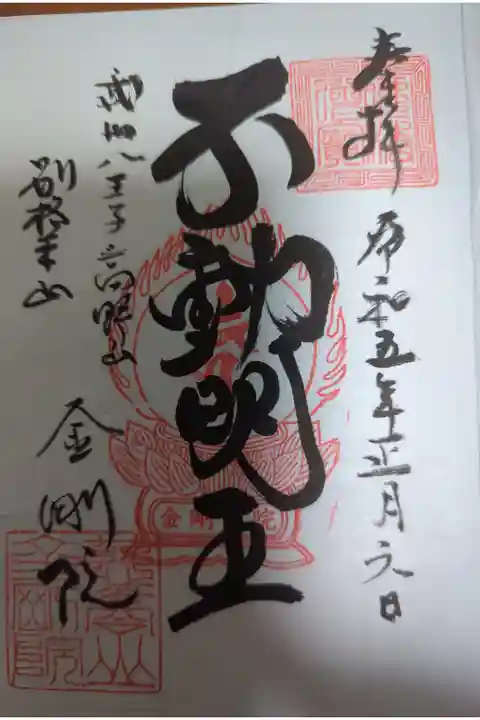 奉拝
令和五年正月元日
不動明王
武州八王子高野山
別格本山
金剛院
金剛院